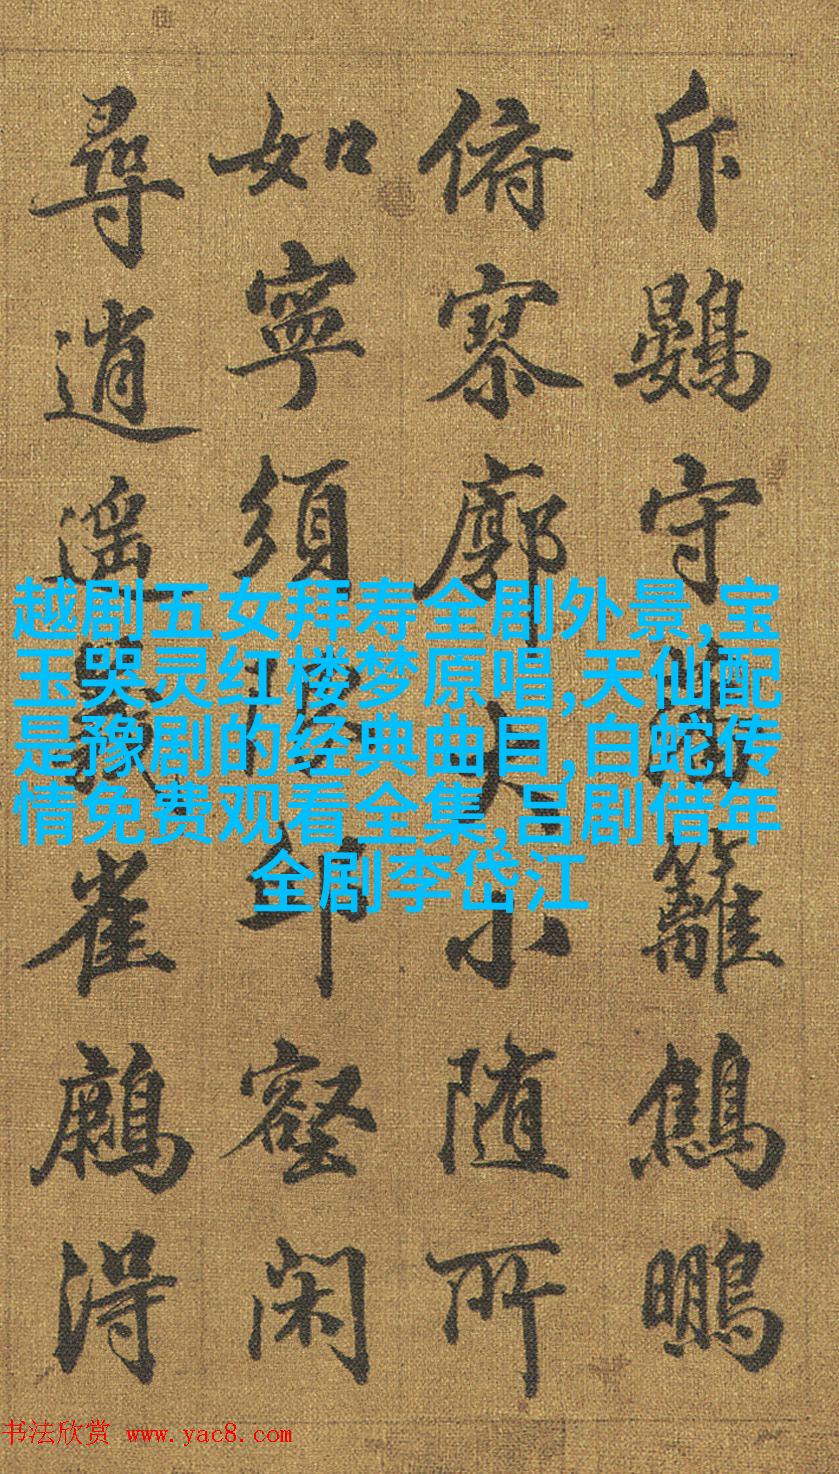 斥鷃守籬鷦鵬
俯寥廓大小随所
如寧須壑閑
尋逍遥雀淂
越剧五女拜寿全剧外景,宝
玉哭灵红楼梦原唱,天仙配
是豫剧的经典曲目,白蛇传
情免费观看全集,吕剧借年
全剧李岱江
书法欣赏 www.yac8.com